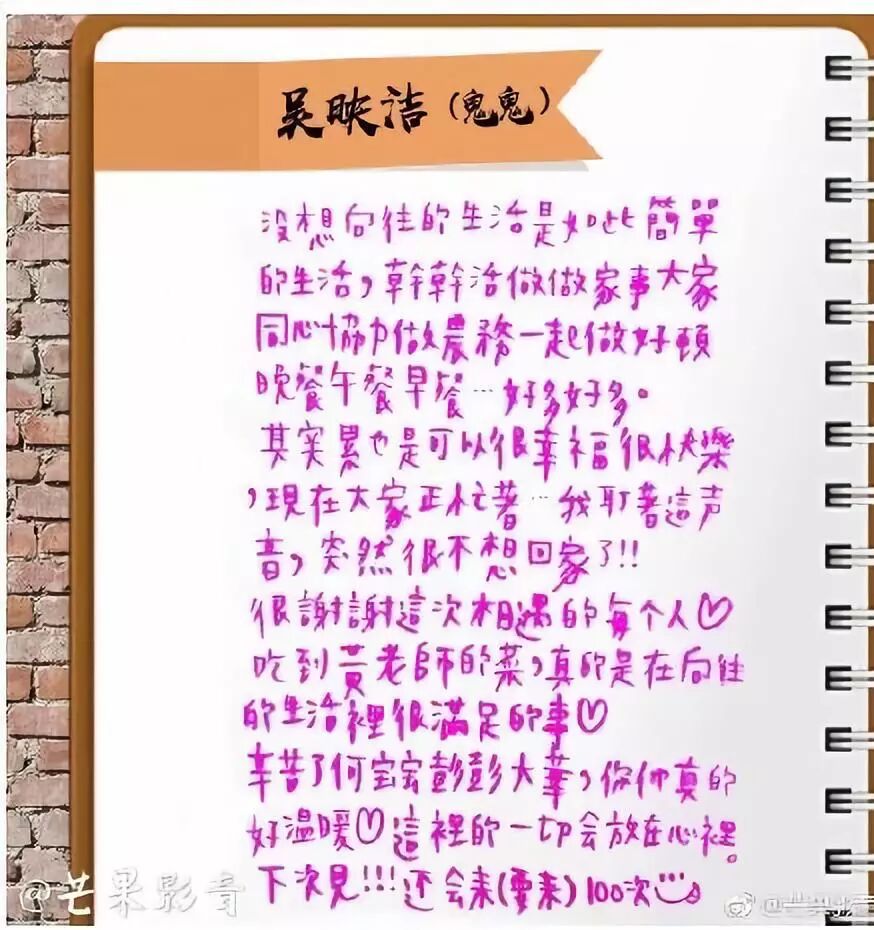 吴映洁（鬼鬼）
没想向往的生活是如此簡單
的生活，幹幹活做做家事大家
同心協力做農務一起做好頓
晚餐午餐早餐…好多好多。
其实累也是可以很幸福很快樂
，現在大家正忙著…我耵著這声
音，突然很不想回家了!!
很謝謝這次相遇的每个人♡
吃到黃老師的菜，真的是在向往
的生活裡很滿足的事♡
辛苦了何宝宝彭彭大華，你们真的
好溫暖♡這裡的一切会放在心裡。
下次見!!!还会来(要来)100次
@芒果影音